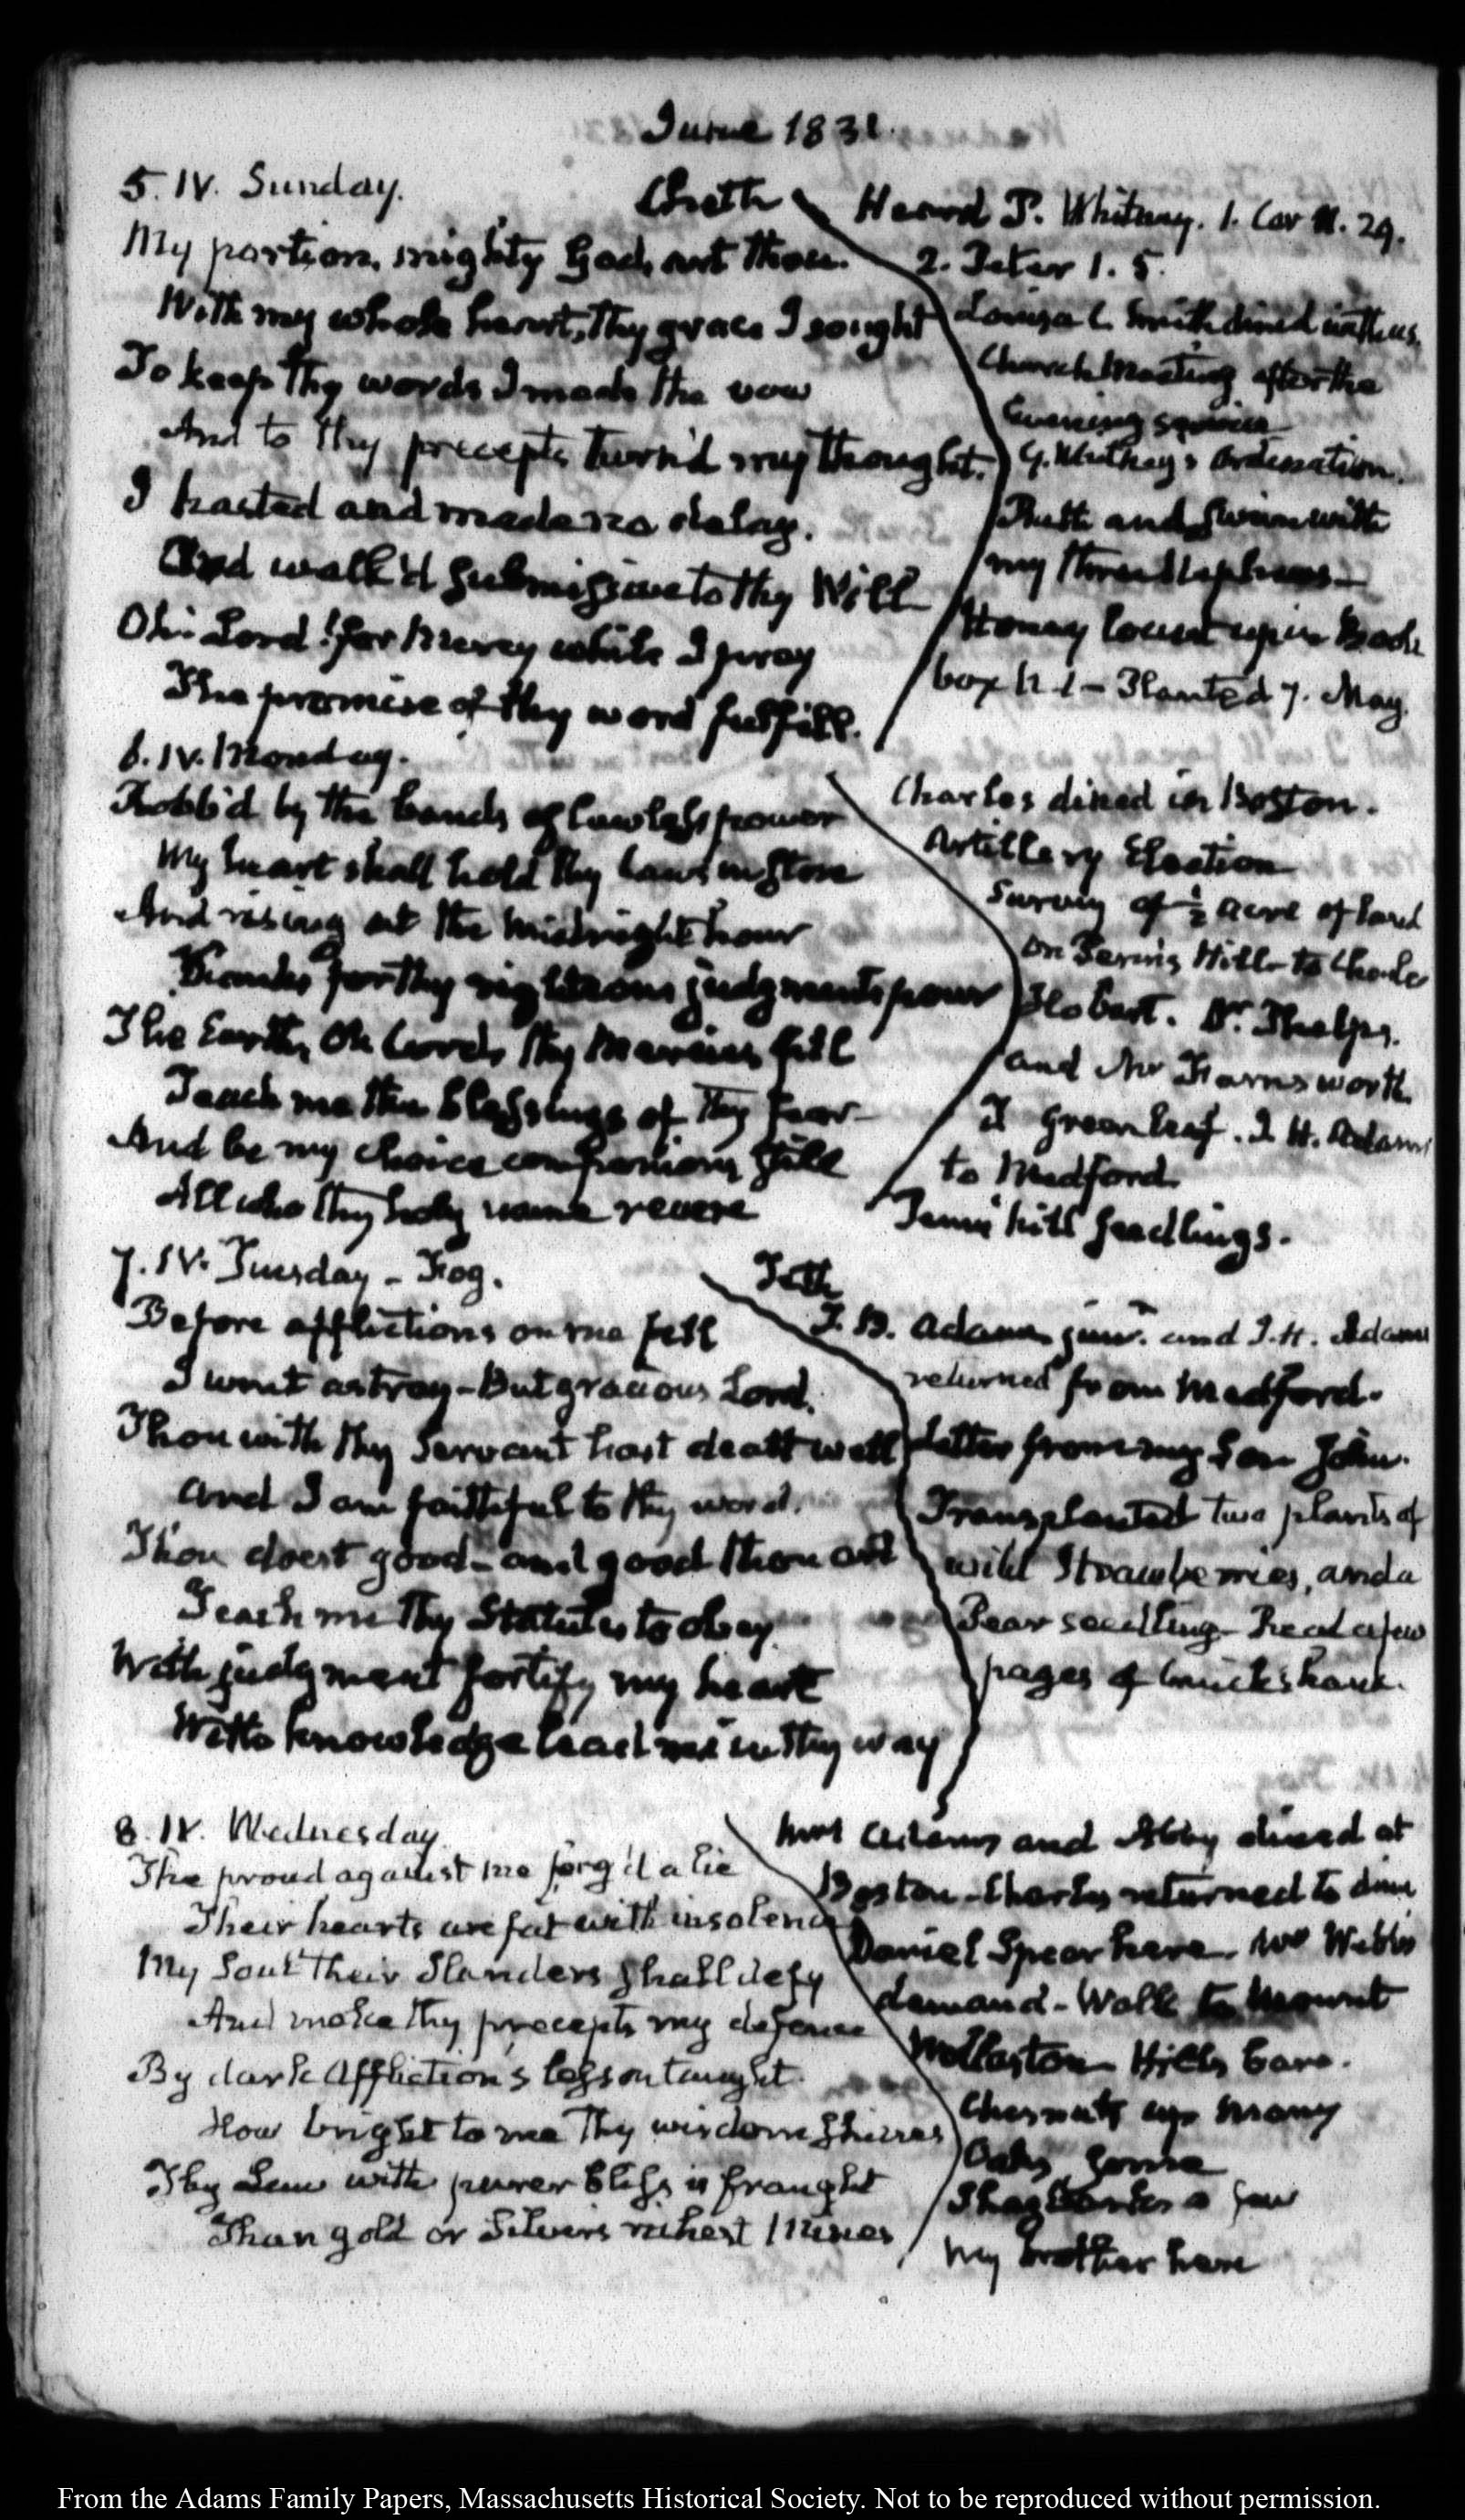 June 1831.
5. IV. Sunday.
Cheth
My portion, mighty God, art thou.
With my whole heart, thy grace I sought
To keep thy words I made the vow
And to thy precepts turn'd my thought.
I hasted and made no delay.
And walk'd submissive to thy Will
Oh! Lord! for mercy while I pray
The promise of thy word fulfill.
Heard P. Whitney. 1. Cor 11. 29.
2. Peter 1. 5.
Louisa C. Smith dined with us.
Church Meeting after the
Evening service
G. Whitney's Ordination.
Bath and Swim with
my three Nephews—
Honey locust up in
box N. 1 – Planted 7. May.
6. IV. Monday.
Robb'd by the bands of lawless power
My heart shall hold thy laws in store
And rising at the midnight hour
Thanks for thy righteous judgments pour
The Earth, Oh Lord, thy Mercies fill
Teach me the blessings of thy fear—
And be my choice companions still
All who thy holy name revere
Charles dined in Boston.
Artillery Election
Survey of ½ acre of land
on Penn's Hill to Charles
Hobart. Dr. Phelps.
and Mr Farnsworth
T Greenleaf. J. H. Adams
to Medford
Penn's hill seedlings.
7. IV. Tuesday – Fog.
Teth
Before afflictions on me fell
I went astray – But gracious Lord.
Thou with thy Servant hast dealt well
And I am faithful to thy word.
Thou doest good – and good thou art
Teach me thy Statutes to obey
With judgment fortify my heart
With knowledge lead me in thy way
T. B. Adams junr. and J. H. Adams
returned from Medford.
Letter from my Son John.
Transplanted two plants of
wild Strawberries, and a
Pear seedling – Read a few
pages of Cruikshank.
8. IV. Wednesday.
The proud against me forg'd a lie
Their hearts are fat with insolence
My Soul their Slanders shall defy
And make thy precepts my defence
By dark Affliction's lesson taught.
How bright to me thy wisdom shines
Thy Law with purer bliss is fraught
Than gold or Silver's richest Mines
Mrs Adams and Abby dined at
Boston – Charles returned to dine
Daniel Spear here. Mr Webb's
demand – Walk to Mount
Wollaston Hills bare.
Chesnuts up many
Oaks some
Shagbarks a few
My brother here
From the Adams Family Papers, Massachusetts Historical Society. Not to be reproduced without permission.